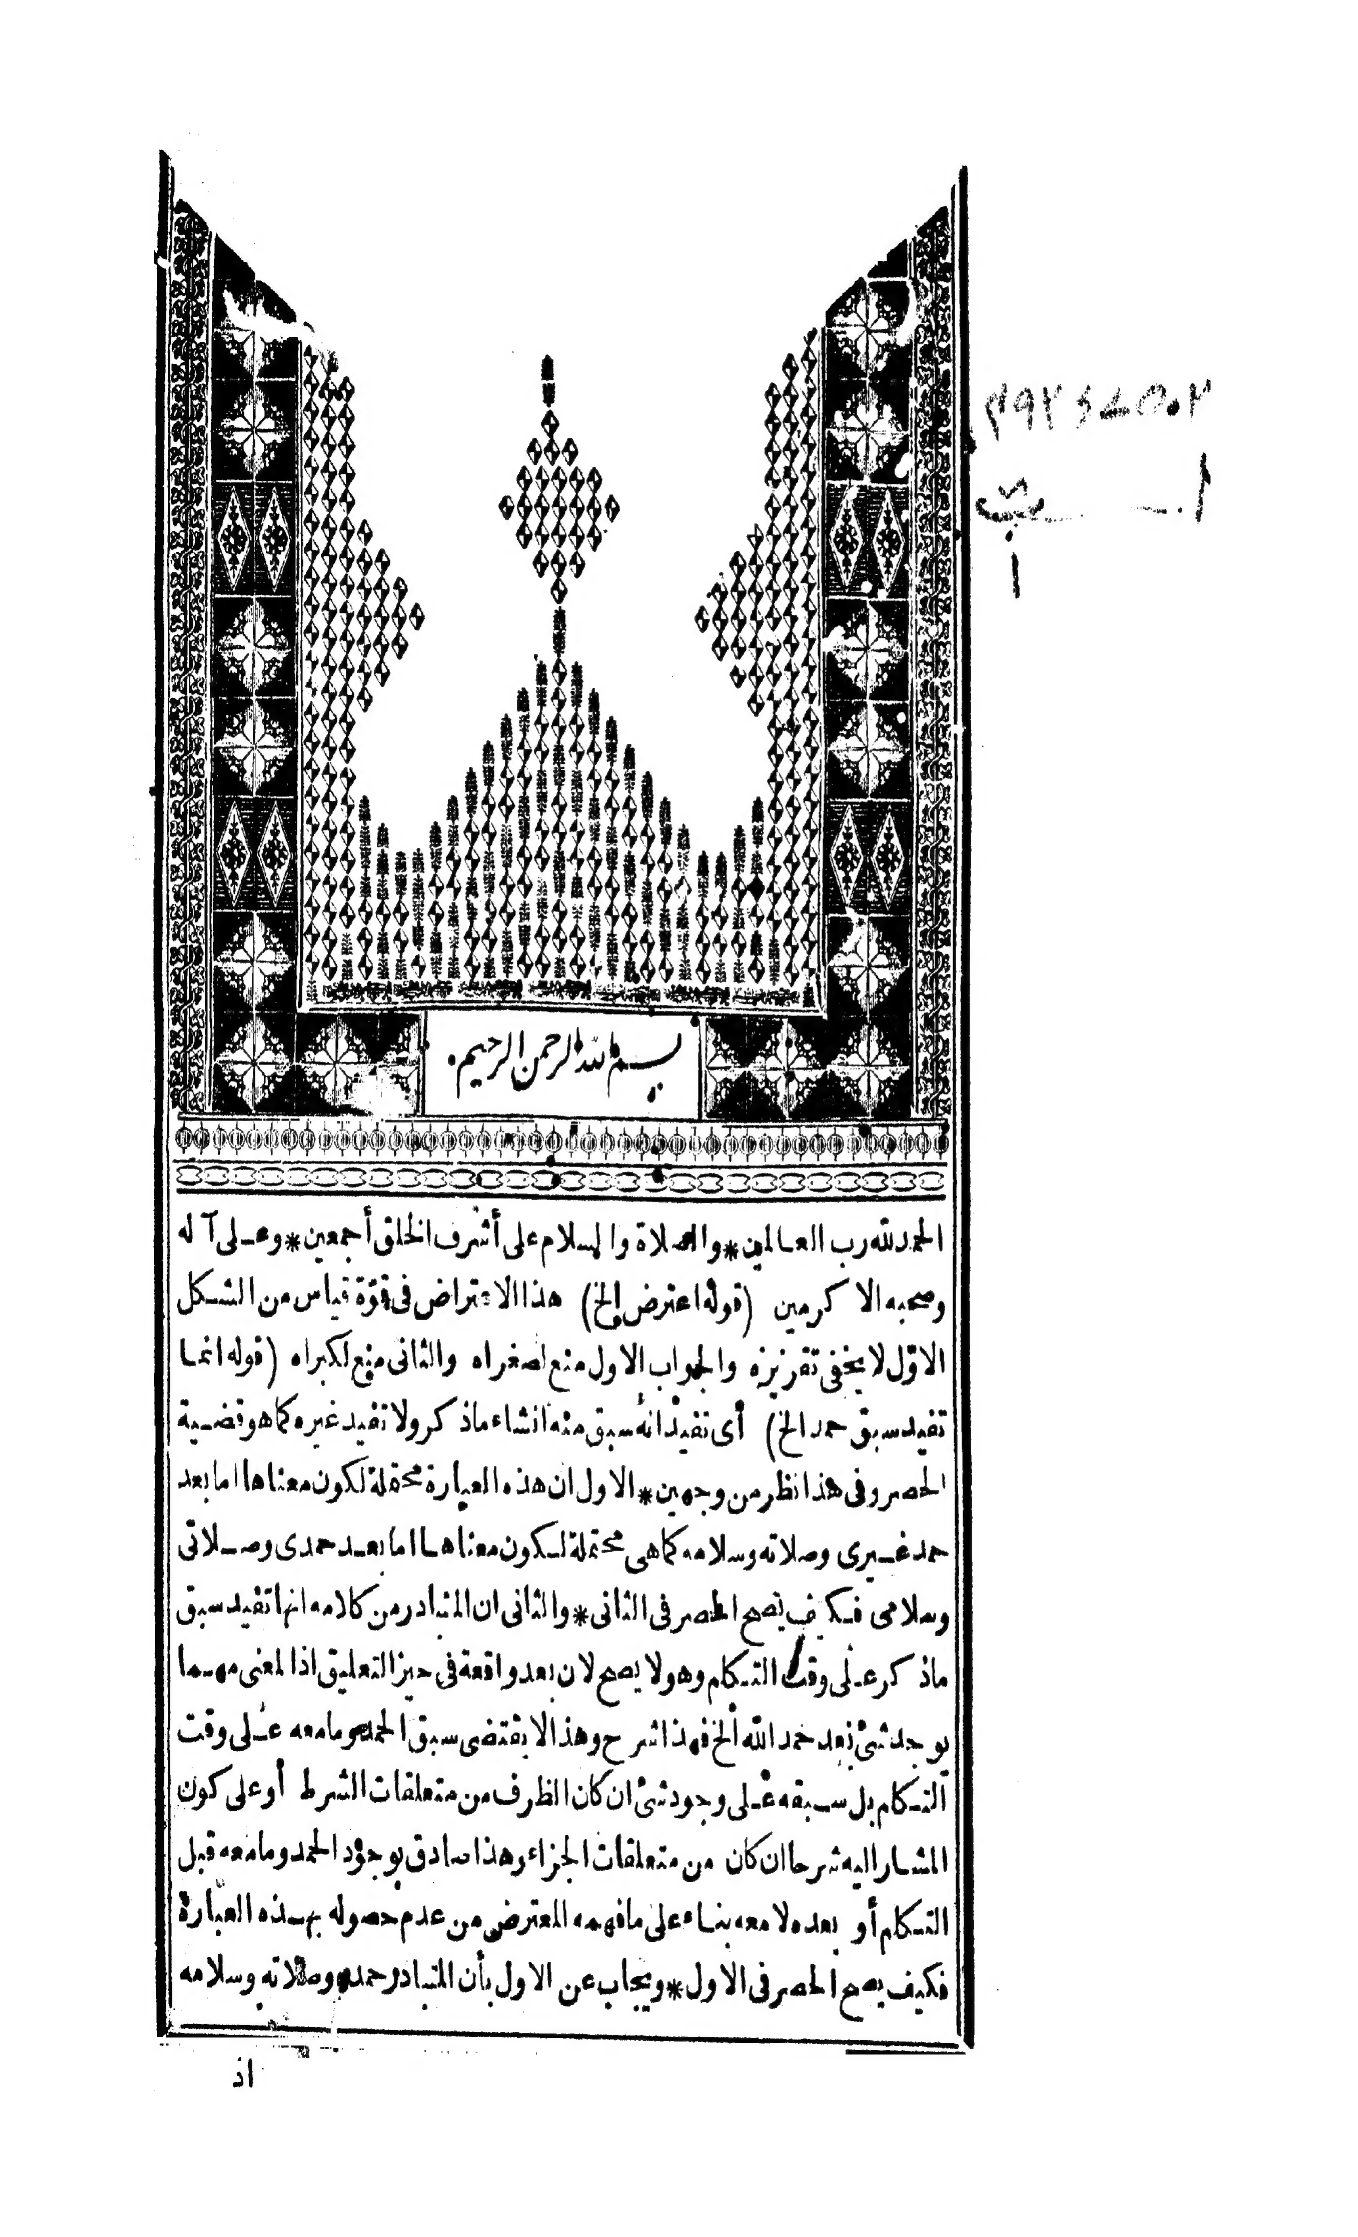 بسم الله الرحمن الرحيم
الحمد لله رب العالمين * والصلاة والسلام على أشرف الخلق أجمعين * وعلى آله
وصحبه الاكرمين (قوله اعترض الخ) هذا الاعتراض فى قوّة قياس من الشكل
الاوّل لا يخفى تقريره والجواب الاول منع لصغراه والثانى منع لكبراه (قوله انما
تفيد سبق حمد الخ) أى تفيد انه سبق منه انشاء ماذكر ولا تفيد غيره كما هو قضية
الحصر وفى هذا نظر من وجهين * الاول ان هذه العبارة محتملة لكون معناها اما بعد
حمد غيرى وصلاته وسلامه كما هى محتملة لكون معناها اما بعد حمدى وصلاتى
وسلامى فكيف يصح الحصر فى الثانى * والثانى ان المتبادر من كلامه انها تفيد سبق
ماذكر على وقت التكلم وهو لا يصح لان بعد واقعة فى حيز التعليق اذ المعنى مهما
يوجد شئ بعد حمد الله الخ فهذا شرح وهذا لا يقتضى سبق الحمد وما معه على وقت
التكلم بل سبقه على وجود شئ ان كان الظرف من متعلقات الشرط أو على كون
المشار اليه شرحا ان كان من متعلقات الجزاء وهذا صادق بوجود الحمد وما معه قبل
التكلم أو بعده لا معه بناء على ما فهمه المعترض من عدم حصوله بهذه العبارة
فكيف يصح الحصر فى الاول * ويجاب عن الاول بأن المتبادر حمده وصلاته وسلامه
اذ